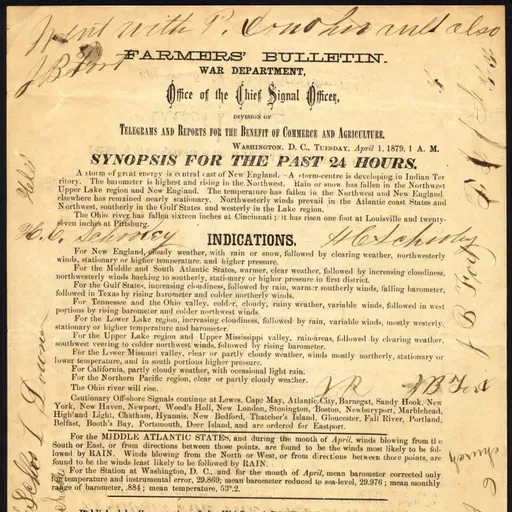 Went with P. Donohue and also
J B Fort
FARMERS' BULLETIN.
WAR DEPARTMENT,
Office of the Chief Signal Officer,
DIVISION OF
TELEGRAMS AND REPORTS FOR THE BENEFIT OF COMMERCE AND AGRICULTURE.
WASHINGTON, D. C., TUESDAY, April 1, 1879, 1 A. M.
SYNOPSIS FOR THE PAST 24 HOURS.
A storm of great energy is central east of New England. A storm-centre is developing in Indian Ter
ritory. The barometer is highest and rising in the Northwest. Rain or snow has fallen in the Northwest
Upper Lake region and New England. The temperature has fallen in the Northwest and New England
elsewhere has remained nearly stationary. Northwesterly winds prevail in the Atlantic coast States and
Northwest, southerly in the Gulf States and westerly in the Lake region.
The Ohio river has fallen sixteen inches at Cincinnati; it has risen one foot at Louisville and twenty-
seven inches at Pittsburg.
INDICATIONS.
For New England, cloudy weather, with rain or snow, followed by clearing weather, northwesterly
winds, stationary or higher temperature, and higher pressure.
For the Middle and South Atlantic States, warmer, clear weather, followed by increasing cloudiness,
northwesterly winds backing to southerly, stationary or higher pressure in first district.
For the Gulf States, increasing cloudiness, followed by rain, warmer southerly winds, falling barometer,
followed in Texas by rising barometer and colder northerly winds.
For Tennessee and the Ohio valley, colder, cloudy, rainy weather, variable winds, followed in west
portions by rising barometer and colder northwest winds.
For the Lower Lake region, increasing cloudiness, followed by rain, variable winds, mostly westerly,
stationary or higher temperature and barometer.
For the Upper Lake region and Upper Mississippi valley, rain-areas, followed by clearing weather,
southwest veering to colder northwest winds, followed by rising barometer.
For the Lower Missouri valley, clear or partly cloudy weather, winds mostly northerly, stationary or
lower temperature, and in south portions higher pressure.
For California, partly cloudy weather, with occasional light rain.
For the Northern Pacific region, clear or partly cloudy weather.
The Ohio river will rise.
J B Fort
Cautionary Off-shore Signals continue at Lewes, Cape May, Atlantic City, Barnegat, Sandy Hook, New
York, New Haven, Newport, Wood's Holl, New London, Stonington, Boston, Newburyport, Marblehead,
Highland Light, Chatham, Hyannis, New Bedford, Thatcher's Island, Gloucester, Fall River, Portland,
Belfast, Booth's Bay, Portsmouth, Deer Island, and are ordered for Eastport.
For the MIDDLE ATLANTIC STATES, and during the month of April, winds blowing from the
South or East, or from directions between those points, are found to be the winds most likely to be fol-
lowed by RAIN. Winds blowing from the North or West, or from directions between those points, are
found to be the winds least likely to be followed by RAIN.
For the Station at Washington, D. C., and for the month of April, mean barometer corrected only
for temperature and instrumental error, 29.869; mean barometer reduced to sea-level, 29.976; mean monthly
range of barometer, .884; mean temperature, 53°.2.